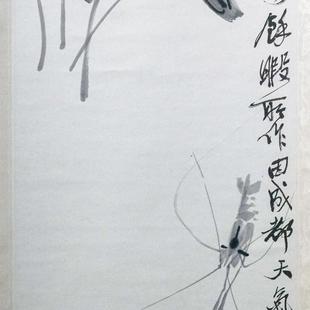 餘暇所作因成都天氣